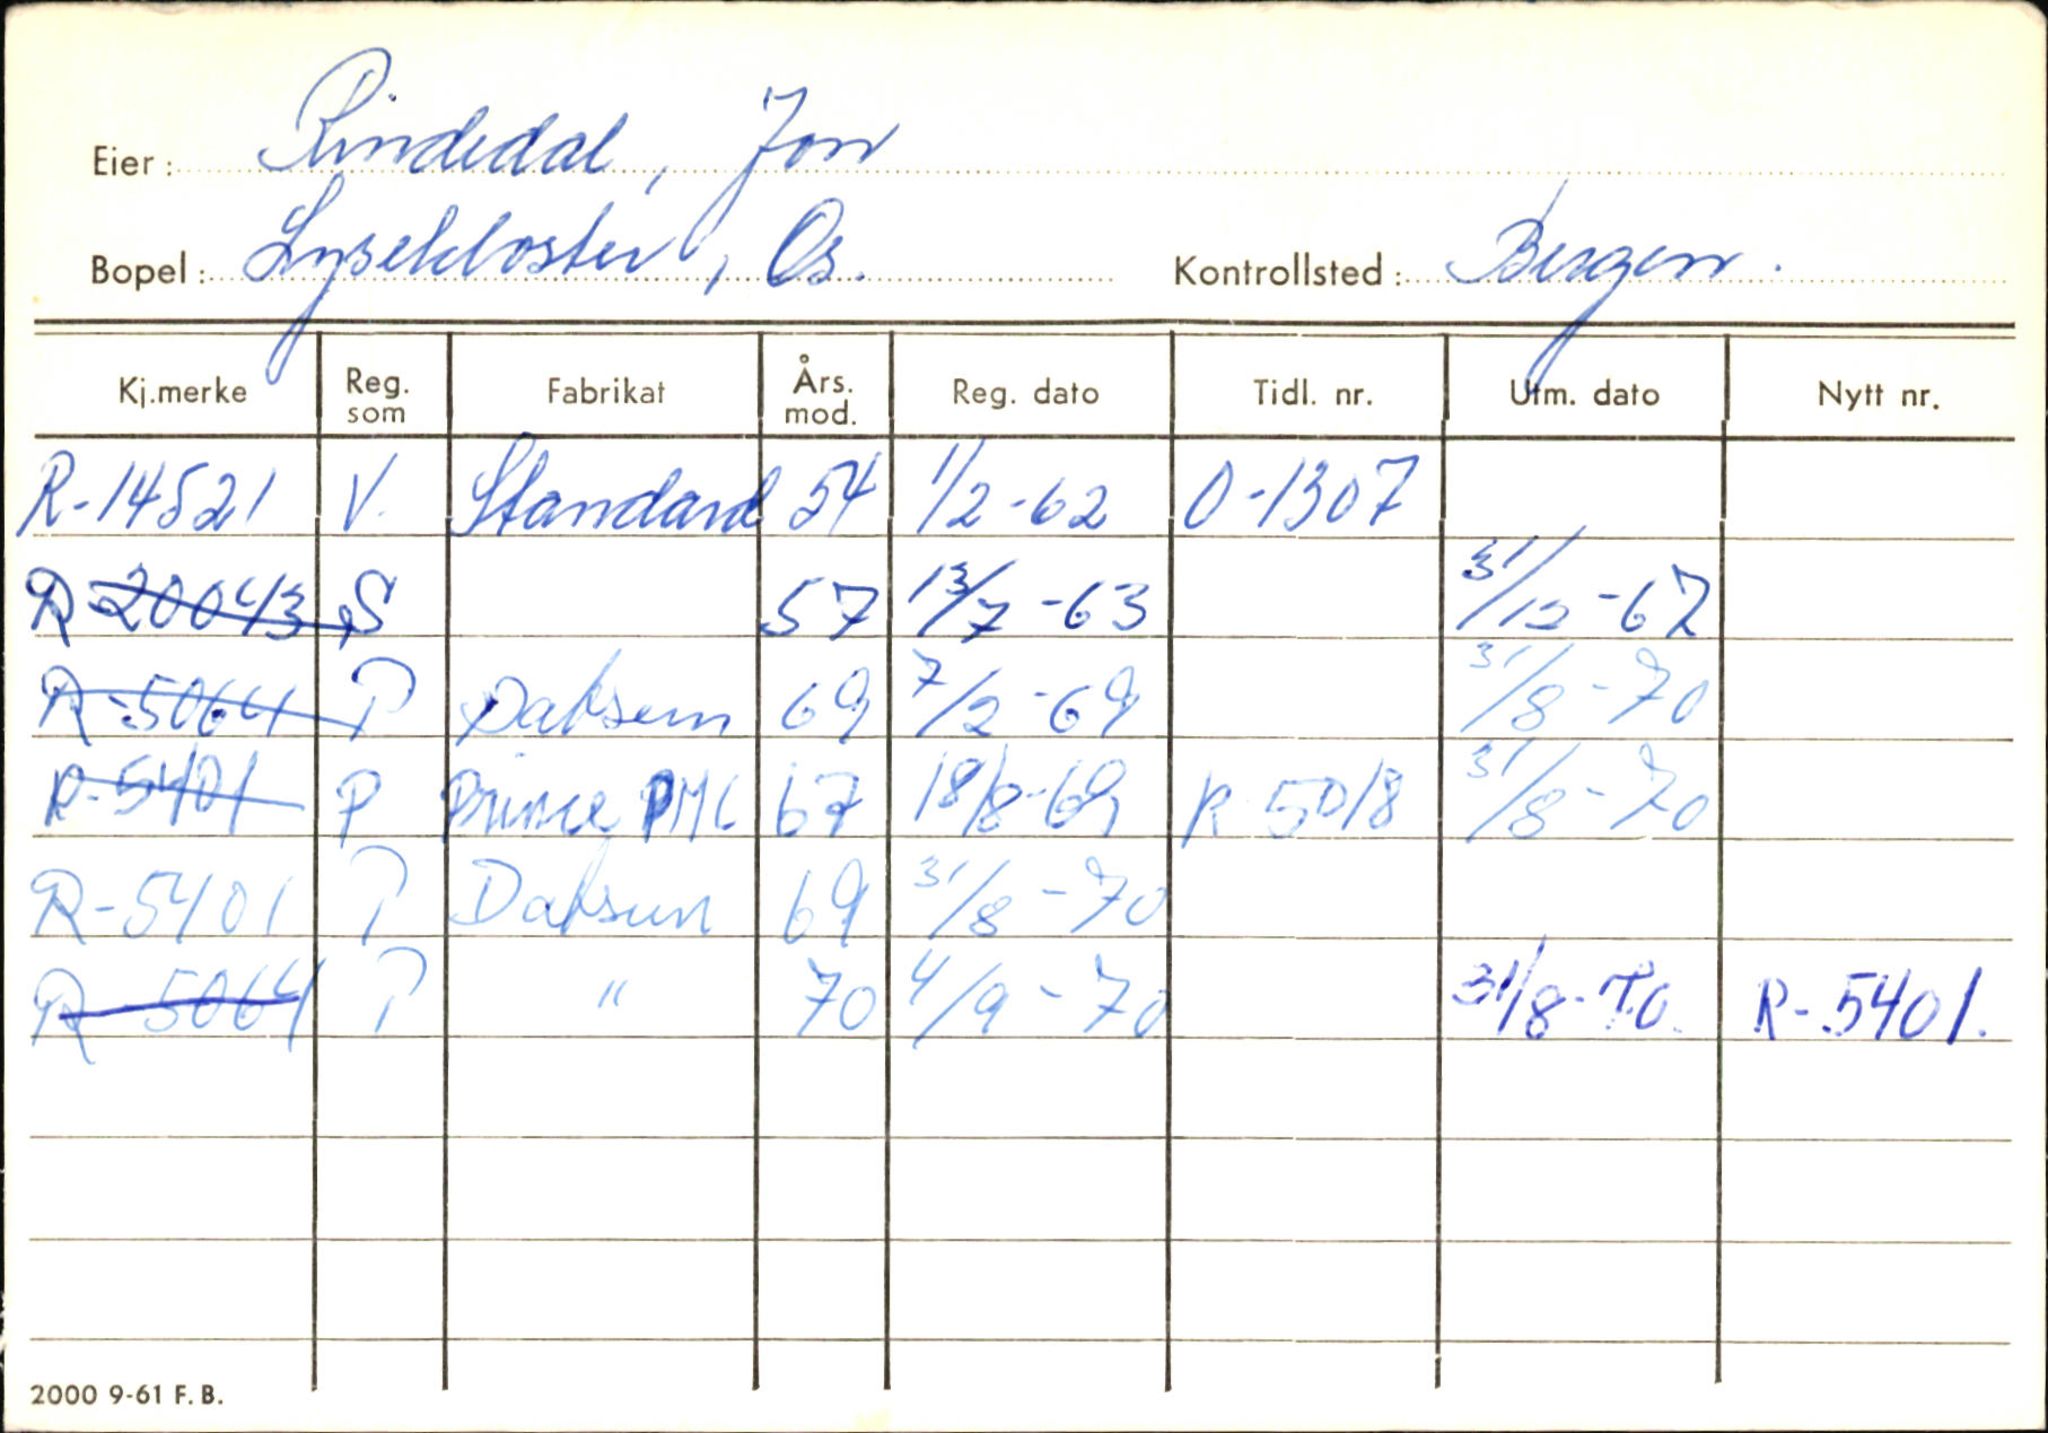 Eier: Rindedal, Jon
Bopel: Lysekloster, Os. Kontrollsted: Bergen.
Kj.merke Reg. som Fabrikat Års. mod. Reg. dato Tidl. nr. Utm. dato Nytt nr.
R-14521 V. Standard 54 1/2-62 O-1307
R-20043 S 57 13/7-63 31/12-67
R-5064 P Datsun 69 7/2-69 31/8-70
R-5401 P Prince PMC 67 18/8-69 R-5018 31/8-70
R-5401 P Datsun 69 31/8-70
R-5064 P " 70 4/9-70 31/8-70. R-5401.
2000 9-61 F. B.